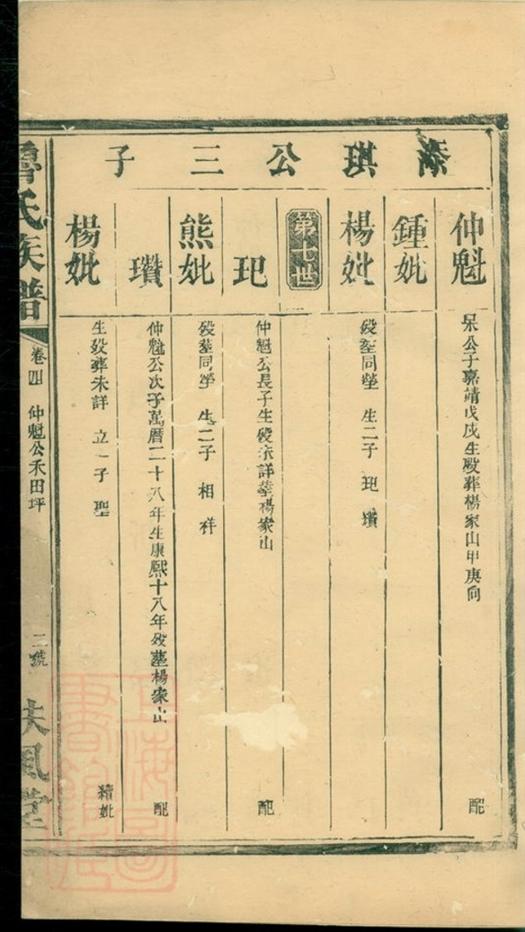 添琪公三子
仲魁
呆公子嘉靖戊戌生殁葬楊家山甲庚向
配
鍾妣
楊妣
殁葬同塋 生二子 玘 瓚
第七世
玘
仲魁公長子生殁未詳葬楊家山
配
熊妣
殁葬同塋 生二子 相 祥
瓚
仲魁公次子萬曆二十八年生康熙十八年殁墓楊家山
配
楊妣
生殁葬未詳 立一子 聖
續妣
魯氏族譜
卷四 仲魁公禾田坪
二號
扶風堂